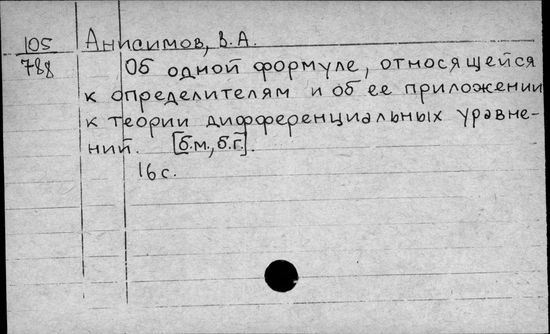 105 Анисимов, В.А.
788 Об одной формуле, относящейся
к определителям и об ее приложении
к теории дифференциальных уравне-
ний. [б.м., б.г.].
16 с.